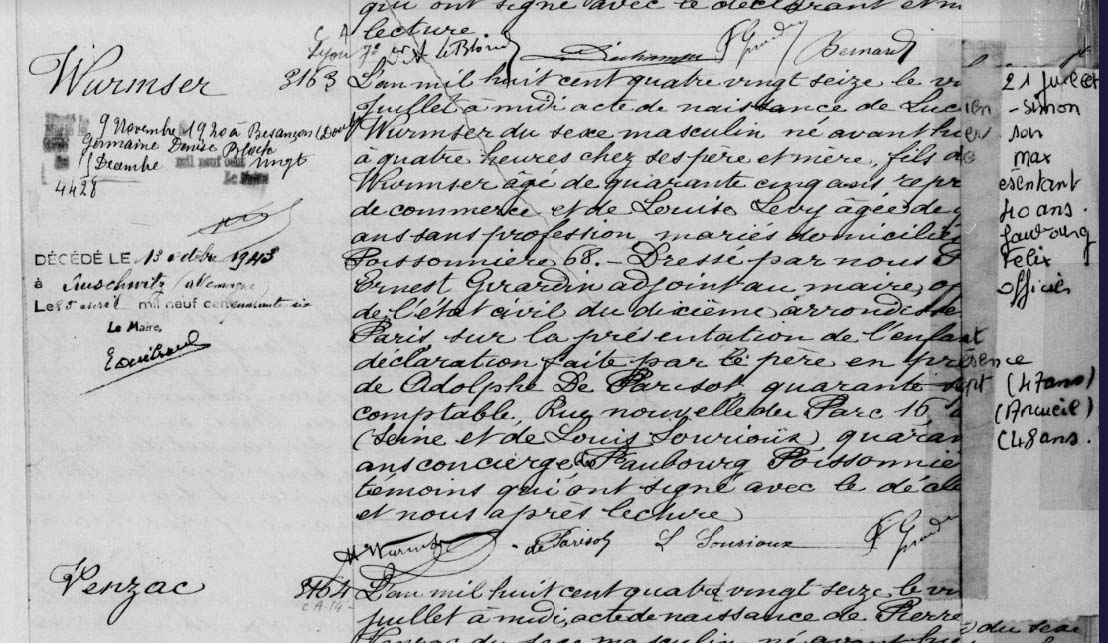 qui ont signé avec le déclarant et
lecture
Bernard
Wurmser
3163
L'an mil huit cent quatre vingt seize le
21 juillet
juillet à midi acte de naissance de Luc
ien
-simon
Wurmser du sexe masculin né avant hier
son
à quatre heures chez ses père et mère, fils de
max
Wurmser âgé de quarante cinq ans repr
ésentant
de commerce et de Louise Levy âgée de
40 ans.
ans sans profession, mariés domiciliés
faubourg
Poissonnière 68. – Dressé par nous
Felix
Ernest Girardin adjoint au maire,
officier
de l'état civil du dixième arrondisse
Paris sur la présentation de l'enfant
déclaration faite par le père en présence
de Adolphe De Parisot, quarante sept
(47 ans)
comptable, Rue nouvelle du Parc 16
(Arcueil)
(Seine et de Louis Sourioux) quaran
(48 ans.
ans concierge Faubourg Poissonniè
témoins qui ont signé avec le décla
et nous après lecture
9 Novembre 1920 à Besançon (Doubs)
Germaine Denise Bloch
mil neuf cent vingt
Le Maire
4428
DÉCÉDÉ LE 13 octobre 1943
à Auschwitz (Allemagne)
Le 25 avril mil neuf cent quarante six
Le Maire,
Wurmser
de Parisot
L Sourioux
Venzac
3164
L'an mil huit cent quatre vingt seize, le
juillet à midi, acte de naissance de Pierre
Venzac du sexe masculin, né avant hier
du sexe